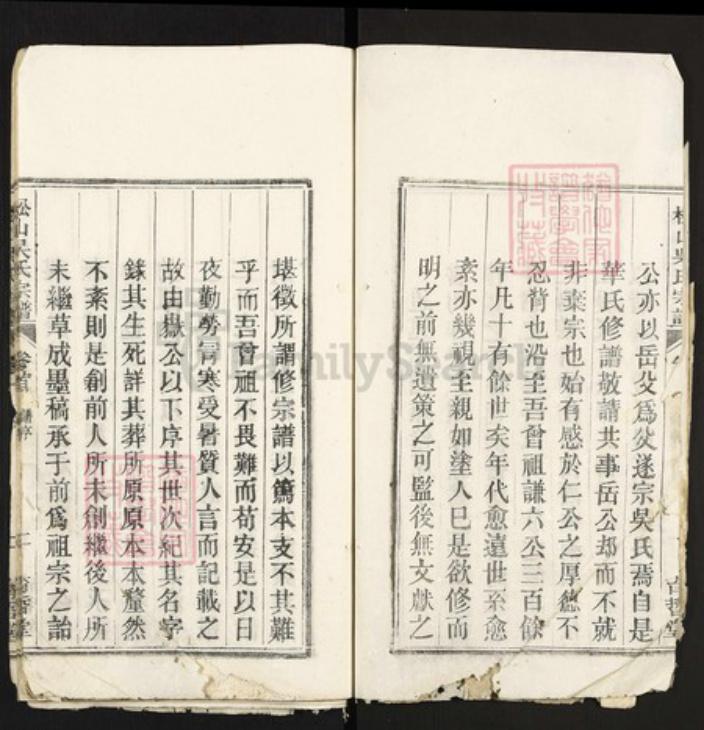 公亦以岳父爲父遂宗吳氏焉自是
華氏修譜敬請共事岳公却而不就
非棄宗也殆有感於仁公之厚德不
忍背也沿至吾曾祖謙六公三百餘
年凡十有餘世矣年代愈遠世系愈
紊亦幾視至親如塗人巳是欲修而
明之前無遺策之可監後無文獻之
堪徵所謂修宗譜以篤本支不其難
乎而吾曾祖不畏難而苟安是以日
夜勤勞冐寒受暑質人言而記載之
故由嶽公以下序其世次紀其名字
錄其生死詳其葬所原原本本釐然
不紊則是創前人所未創繼後人所
未繼草成墨稿承于前爲祖宗之詒
松山吳氏宗譜
卷首
FamilySearch